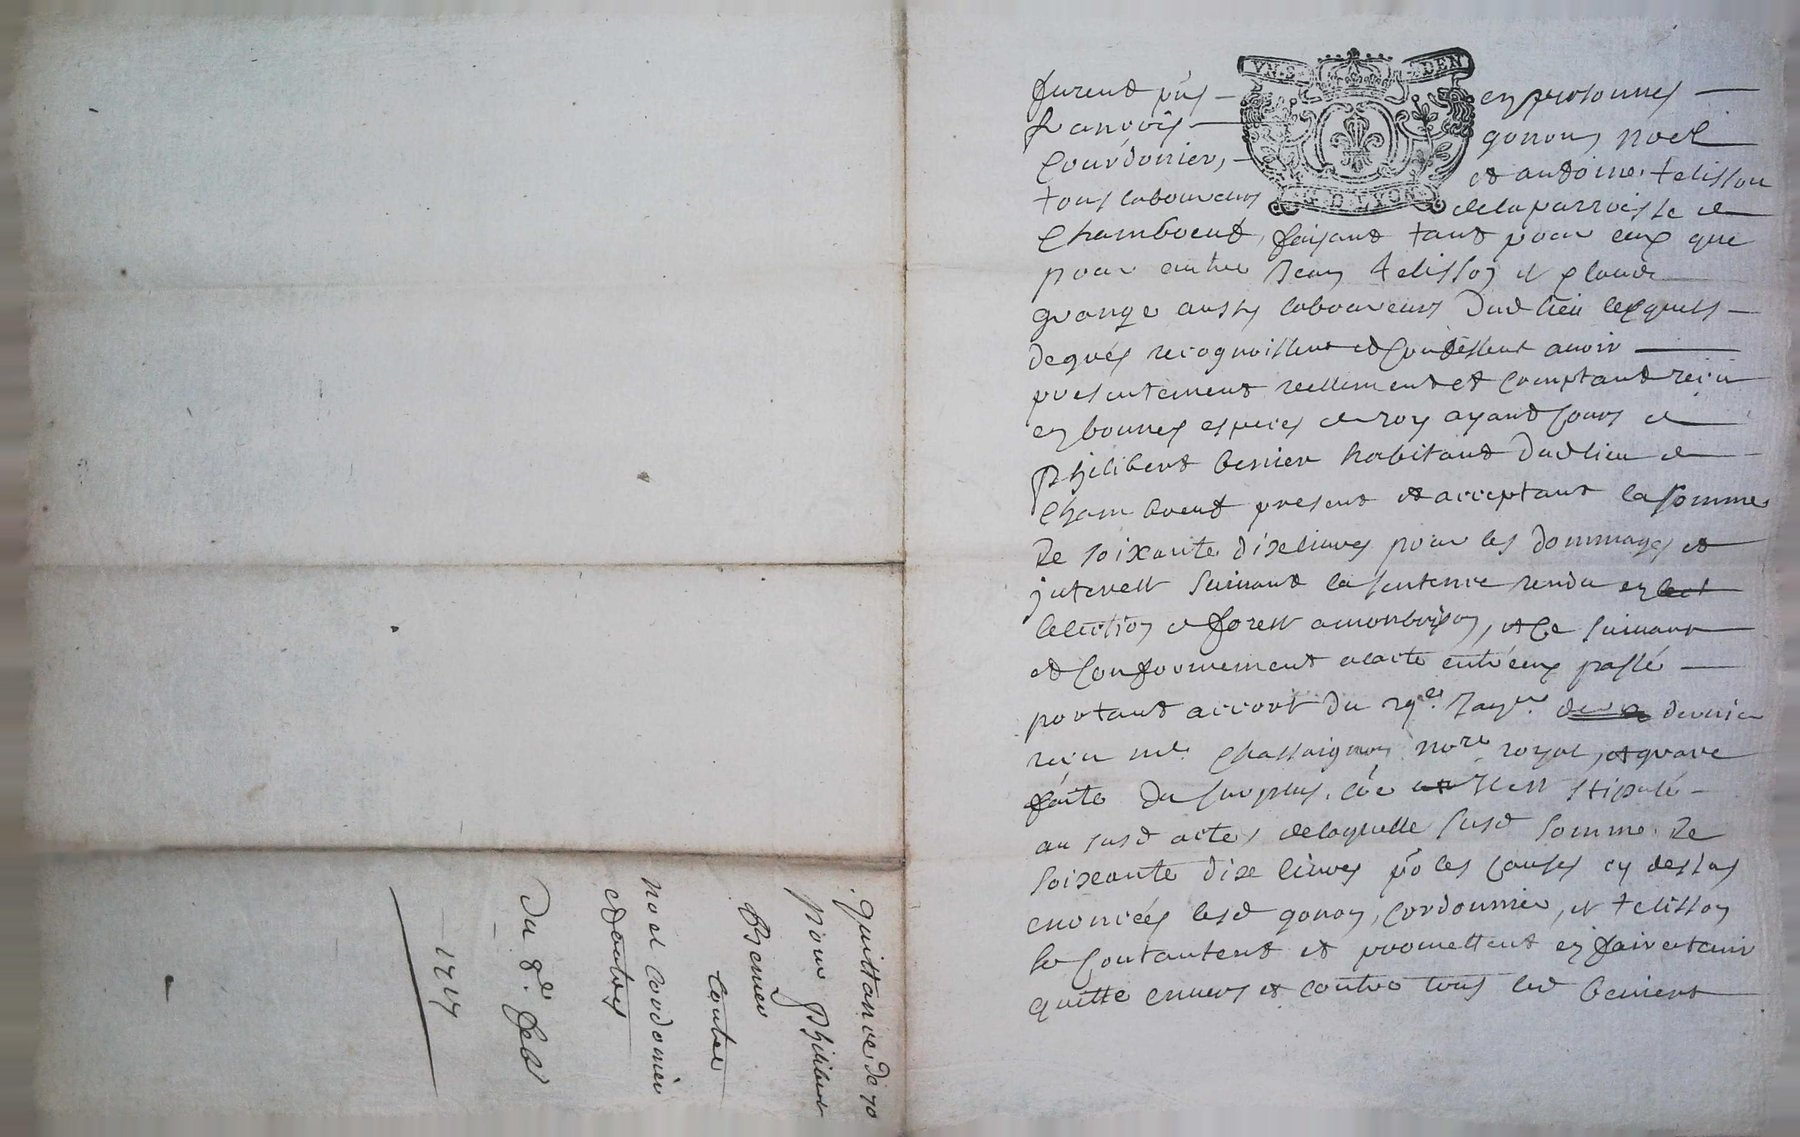 VN.S DEN
G. D LYON
furent pñs en personnes
francois gonon, noel
Courdonier, et antoine telisson
tous laboureurs de la parroisse de
Chamboeut, faisant tant pour eux que
pour autre Jean telisson et Claude
grange aussy laboureurs dud lieu lesquels
de grés recognoissent et Confessent avoir
presentement reellement et Comptant reçu
en bonnes especes de roy ayant Cours de
Philibert benier habitant dud lieu de
Chamboeut present et acceptant la somme
De soixante dixe livres pour les dommages et
jnterest suivant la sentence rendu en
lelection de forest a monbrison, et Ce suivant
et Conformement a lacte entr'eux passé
portant accort du 29e. Janr. dernier
reçu me. Chassaignon nore royal, et grace
faite du surplus, stipulé
au susd acte, de laquelle susd somme De
soixante dixe livres po les Causes cy dessus
enoncées lesd gonon, Cordonnier, et telisson
se Contantent et promettent en faire tenir
quitte envers et contre tous led benier
quittance de 70
pour Philibert
Benier
Contre
noel Cordonnier
et autres
Du 8e. feb
1717